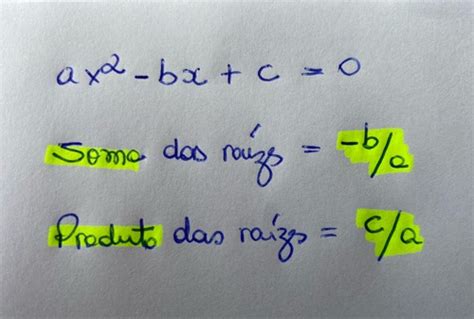 ax² - bx + c = 0
Soma das raízs = -b/a
Produto das raízs = c/a